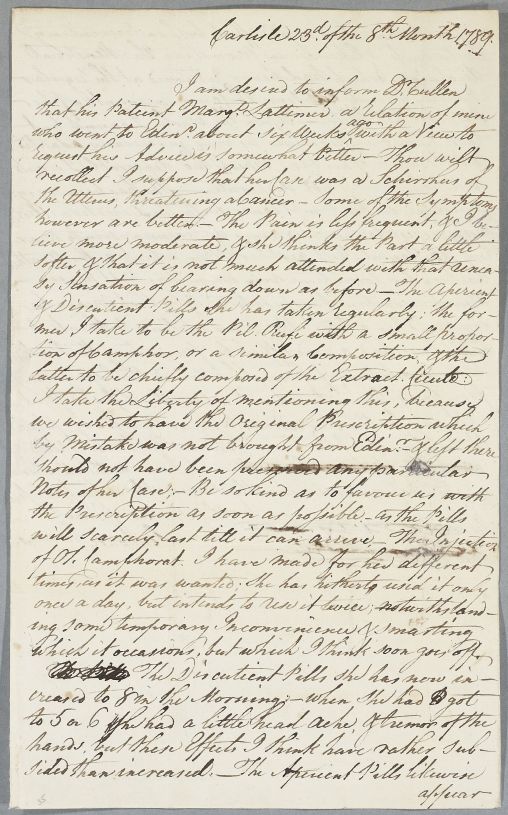 Carlisle 23d. of the 8th Month 1789.
I am desired to inform Dr. Cullen
that his Patient Margt. Lattimer a relation of mine
who went to Edenr. about Six Weeks ago with a View to
request his Advice is somewhat better – Thou wilt
recollect I suppose that her Case was a Schirrhus of
the Uterus, threatning a Cancer – Some of the Symptoms
however are better – The Pain is less frequent, & I be-
lieve more moderate, & she thinks the Part a little
softer, & that it is not much attended with that uneasy
Sensation of bearing down as before – The Aperient
& Discutient Pills she has taken regularly; the for-
mer I take to be the Pil. Rufi with a small propor-
tion of Camphor, or a similar Composition, & the
latter to be chiefly composed of the Extract. Cicutæ:
I take the Liberty of mentioning this, because
we wished to have the Original Prescription which
by Mistake was not brought from Edenr. & left there
should not have been any particular
Notes of her Case; – Be so kind as to favour us with
the Prescription as soon as possible – as the Pills
will scarcely last till it can arrive – The Injection
of Ol. Camphorat. I have made for her different
times, as it was wanted; she has hitherto used it only
once a day, but intends to use it twice, notwithstand-
ing some temporary Inconvenience & smarting
which it occasions, but which I think soon goes off
The Discutient Pills she has now in-
creased to 8 in the Morning; – when she had got
to 5 or 6 she had a little head ache, & tremor of the
hands, but these Effects I think have rather sub-
sided than increased. – The Aperient Pills likewise
appear